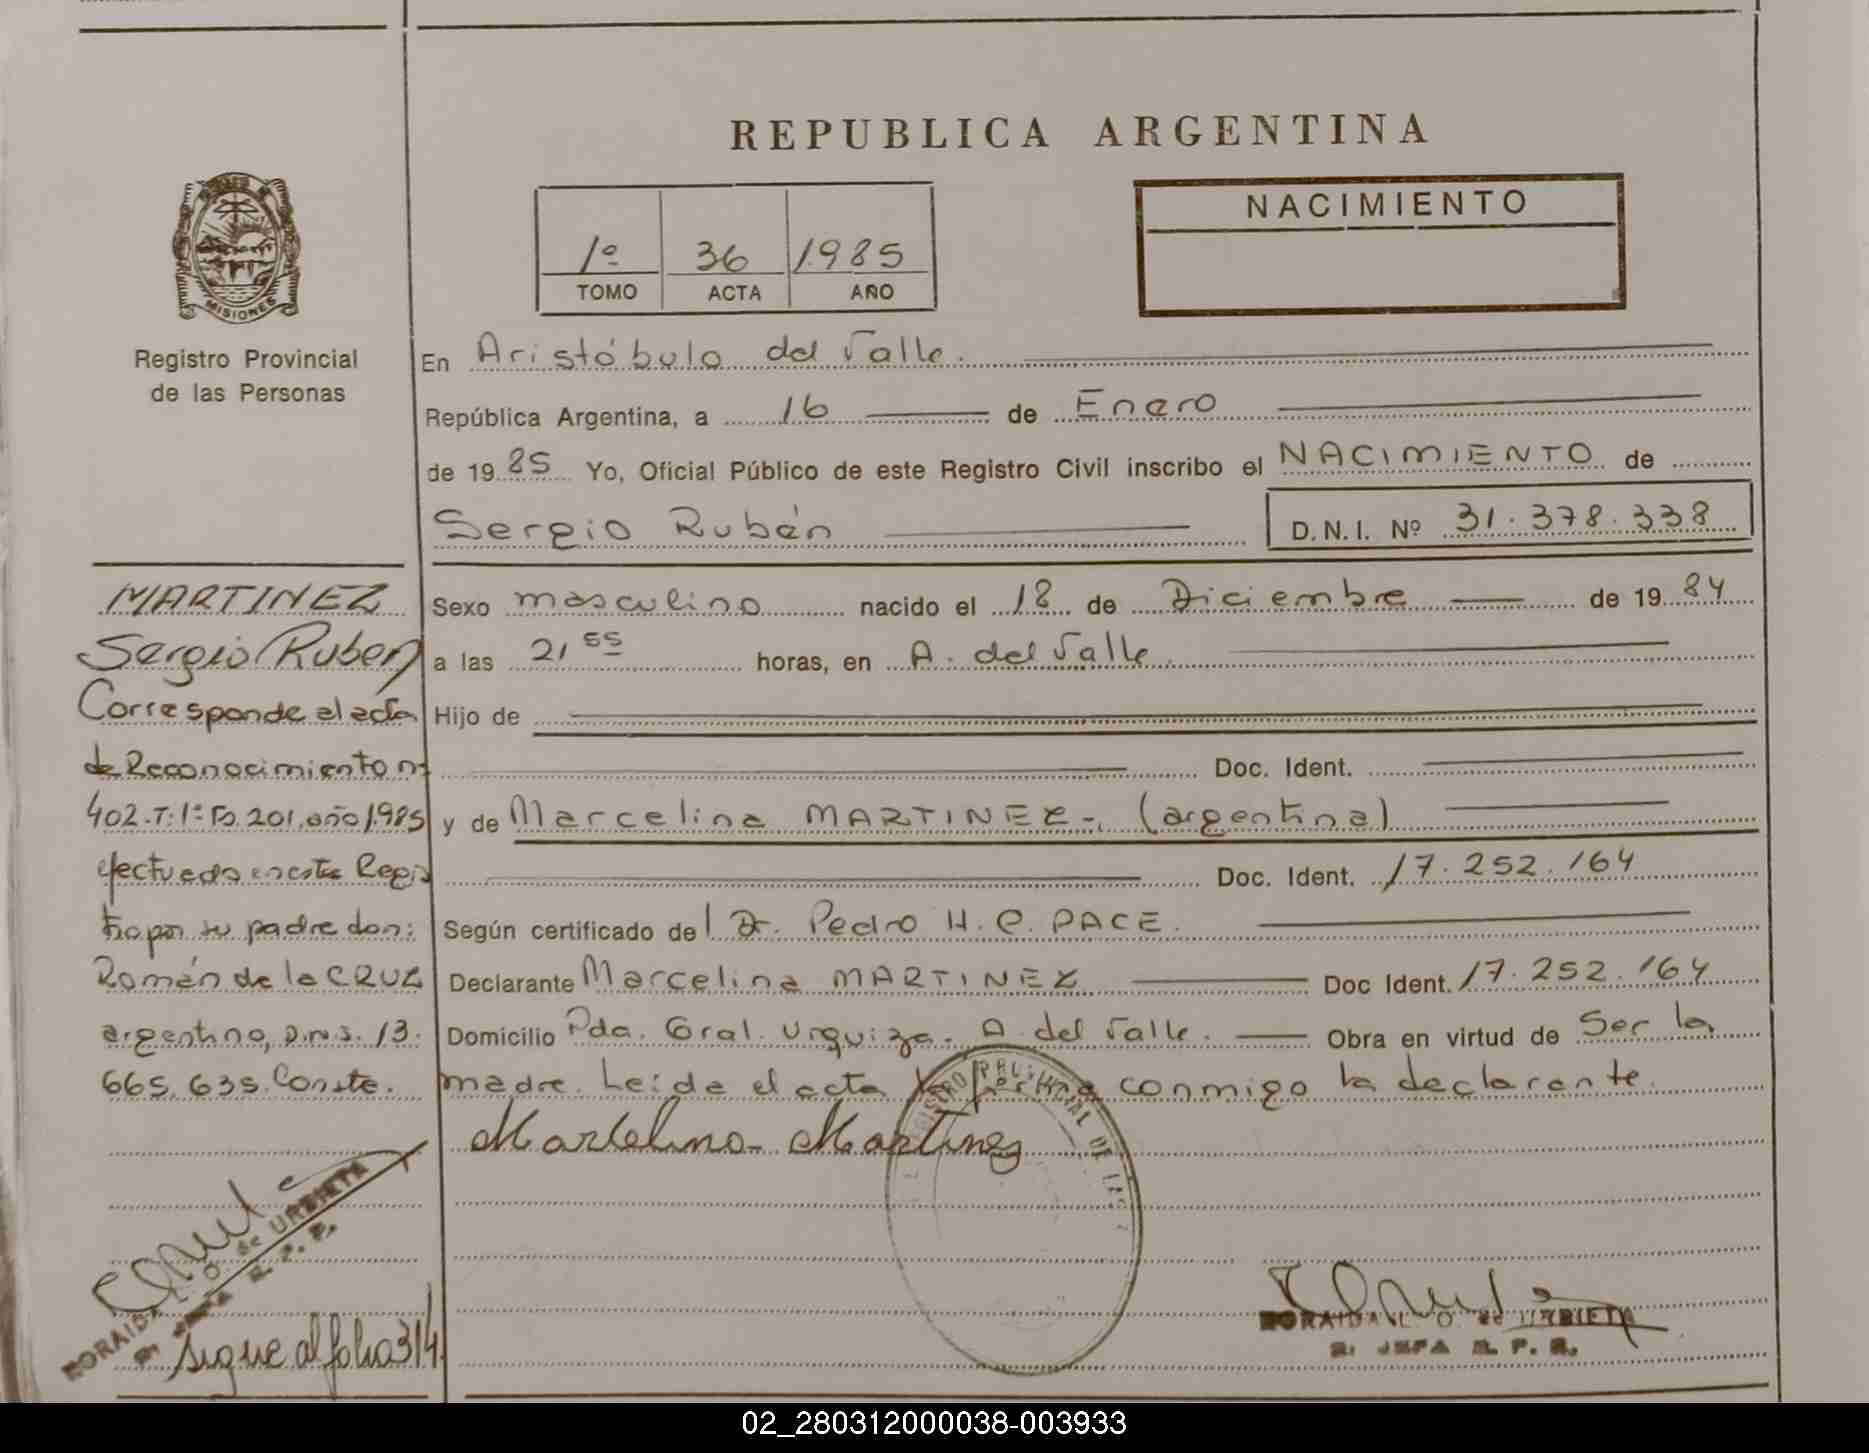 REPUBLICA ARGENTINA
NACIMIENTO
1º 36 1985
TOMO ACTA AÑO
MISIONES
Registro Provincial
de las Personas
En Aristóbulo del Valle.
República Argentina, a 16 de Enero
de 1985 Yo, Oficial Público de este Registro Civil inscribo el NACIMIENTO de
Sergio Rubén
D.N.I. Nº 31.378.338
Sexo masculino nacido el 18 de Diciembre de 1984
a las 21 55 horas, en A. del Valle
Hijo de
Doc. Ident.
y de Marcelina MARTINEZ-, (argentina)
Doc. Ident. 17.252.164
Según certificado del Dr. Pedro H. C. PACE.
Declarante Marcelina MARTINEZ Doc Ident. 17.252.164
Domicilio Pda. Gral. Urquiza. A. del Valle. Obra en virtud de Ser la
madre. Leida el acta la firma conmigo la declarante.
Marcelina Martinez
REGISTRO PROVINCIAL DE LAS
ZORAIDA L. O. de URBIETA
R. JEFA R. P. R.
MARTINEZ
Sergio Ruben
Corresponde al acta
de Reconocimiento nº
402.T:1º Fº 201, año 1985
efectuada en este Regis
tro por su padre don:
Román de la CRUZ
argentino, D.N.I. 13.
665.635. Conste.
ZORAIDA L. O. de URBIETA
JEFA R. P. R.
Sigue al folio 314
02_280312000038-003933